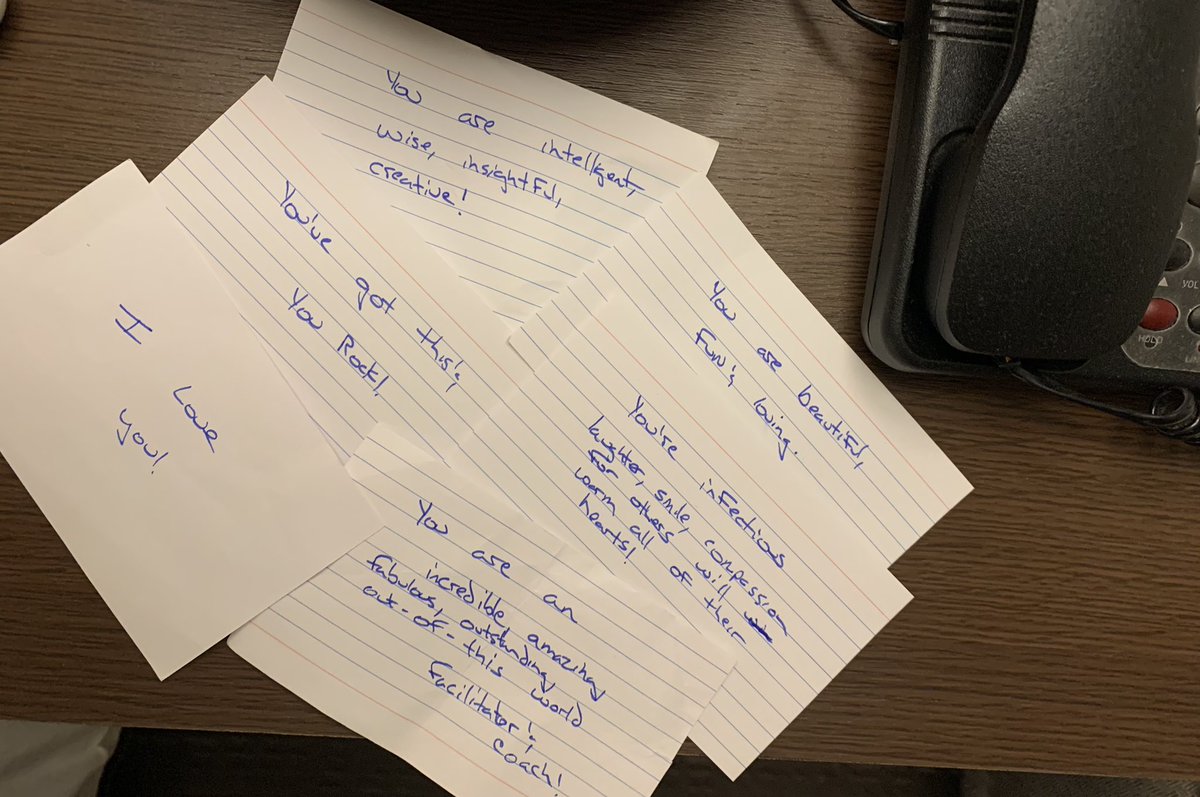 You are intelligent,
wise, insightful,
creative!
You've got this!,
You Rock!
I
Love
you!
You are beautiful,
Fun & loving.
You're infectious
laughter, smile, compassion
for others will
warm all of their
hearts!
You are an
incredible amazing
fabulous, outstanding
out-of-this world
Facilitator &
Coach!
HOLD
VOL